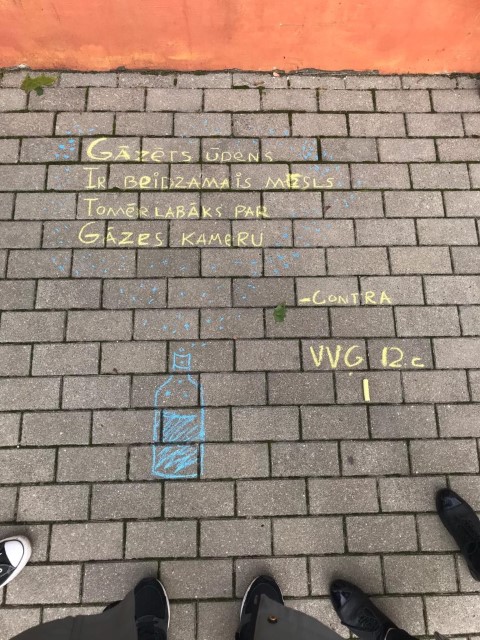 GĀZĒTS ŪDENS
IR BEIDZAMAIS MĒSLS
TOMĒR LABĀKS PAR
GĀZES KAMERU
-CONTRA
VVG 12.c
1